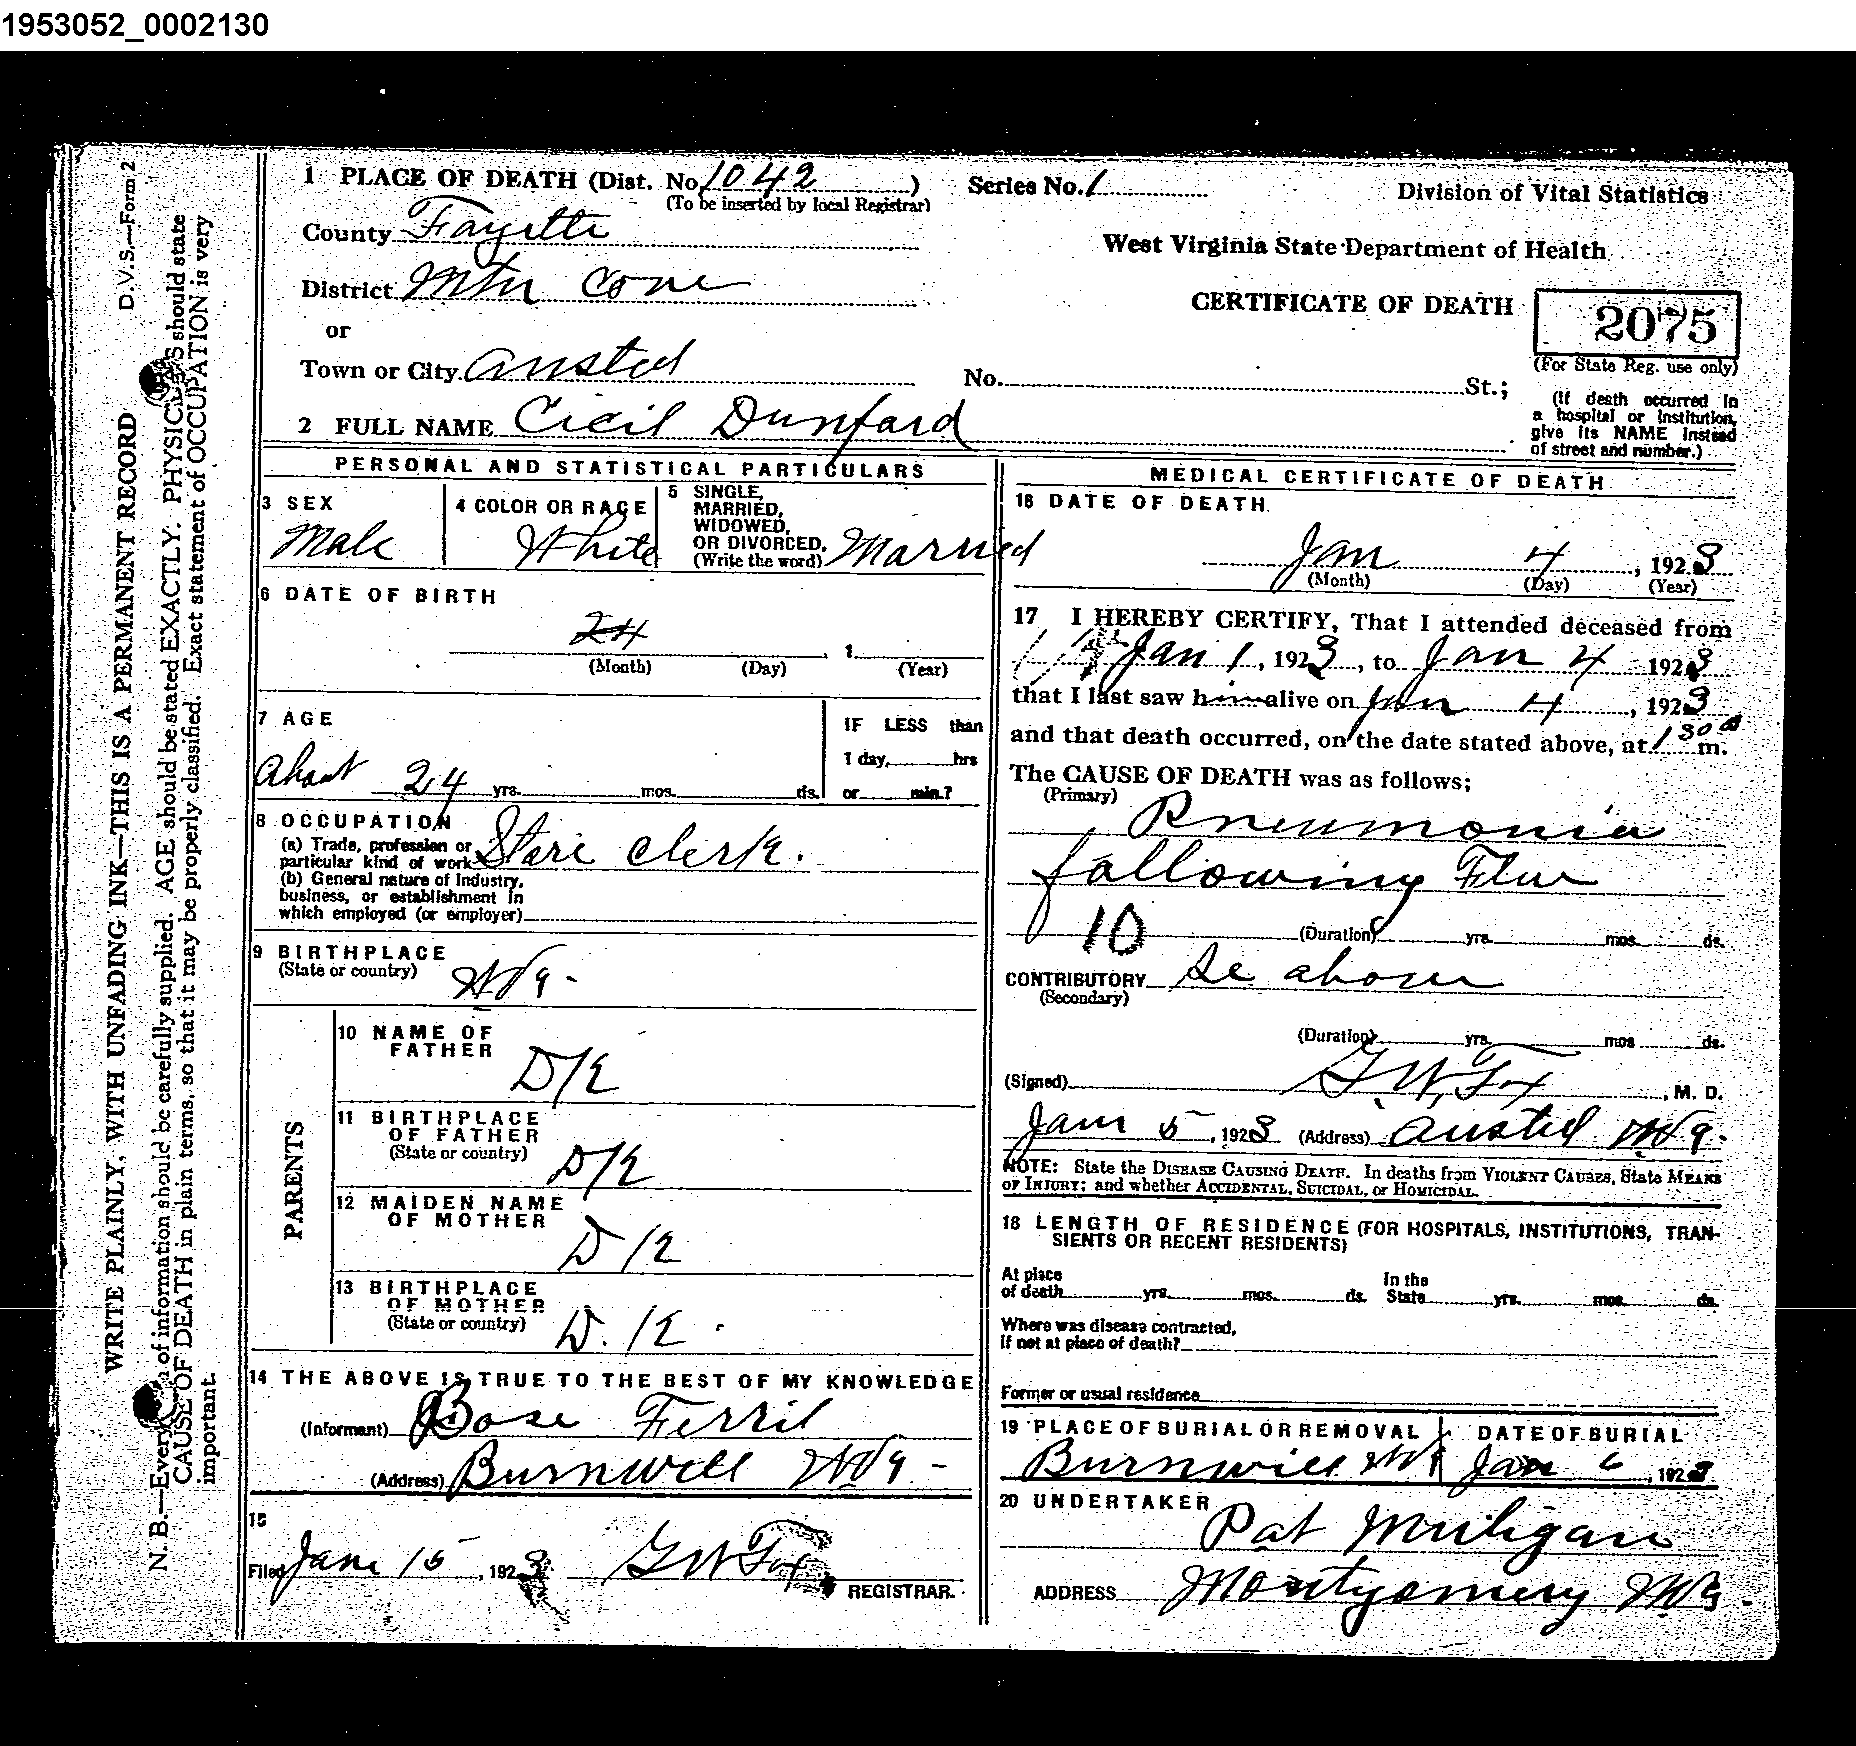 1953052_0002130
1 PLACE OF DEATH (Dist. No. 1042 ) Series No. 1
(To be inserted by local Registrar)
Division of Vital Statistics
County Fayette
West Virginia State Department of Health
District Mtn Cove
CERTIFICATE OF DEATH 2075
(For State Reg. use only)
or
Town or City Ansted No. St.;
(If death occurred in
a hospital or institution,
give its NAME instead
of street and number.)
2 FULL NAME Cicil Dunford
PERSONAL AND STATISTICAL PARTICULARS
3 SEX
Male
4 COLOR OR RACE
White
5 SINGLE,
MARRIED,
WIDOWED,
OR DIVORCED,
(Write the word) Married
6 DATE OF BIRTH
24
(Month) (Day) , 1 (Year)
7 AGE
About 24 yrs. mos. ds.
IF LESS than
1 day, hrs
or min.?
8 OCCUPATION
(a) Trade, profession or
particular kind of work Store Clerk.
(b) General nature of Industry,
business, or establishment in
which employed (or employer)
9 BIRTHPLACE
(State or country) W Va -
PARENTS
10 NAME OF
FATHER D K
11 BIRTHPLACE
OF FATHER
(State or country) D K
12 MAIDEN NAME
OF MOTHER D K
13 BIRTHPLACE
OF MOTHER
(State or country) D. K.
14 THE ABOVE IS TRUE TO THE BEST OF MY KNOWLEDGE
(Informant) Bose Ferril
(Address) Burnwell W Va -
15
Filed Jan 15, 1923 G W Fox
REGISTRAR.
MEDICAL CERTIFICATE OF DEATH
16 DATE OF DEATH
Jan 4, 1923
(Month) (Day) (Year)
17 I HEREBY CERTIFY, That I attended deceased from
Jan 1, 1923, to Jan 4 1923
that I last saw him alive on Jan 4, 1923
and that death occurred, on the date stated above, at 1 30 a m.
The CAUSE OF DEATH was as follows;
(Primary)
Pneumonia
following Flu
10 (Duration) yrs. mos. ds.
CONTRIBUTORY Se above
(Secondary)
(Duration) yrs. mos. ds.
(Signed) G. W. Fox, M. D.
Jan 5, 1923 (Address) Ansted W Va.
NOTE: State the DISEASE CAUSING DEATH. In deaths from VIOLENT CAUSES, State MEANS
OF INJURY; and whether ACCIDENTAL, SUICIDAL, or HOMICIDAL.
18 LENGTH OF RESIDENCE (FOR HOSPITALS, INSTITUTIONS, TRAN-
SIENTS OR RECENT RESIDENTS)
At place
of death yrs. mos. ds. In the
State yrs. mos. ds.
Where was disease contracted,
if not at place of death?
Former or usual residence
19 PLACE OF BURIAL OR REMOVAL
Burnwell W Va
DATE OF BURIAL
Jan 6, 1923
20 UNDERTAKER
Pat Muligan
ADDRESS Montgomery W Va.
D.V.S.—Form 2
WRITE PLAINLY, WITH UNFADING INK—THIS IS A PERMANENT RECORD
N. B.—Every of information should be carefully supplied. AGE should be stated EXACTLY. PHYSIC S should state
CAUSE OF DEATH in plain terms, so that it may be properly classified. Exact statement of OCCUPATION is very
important.